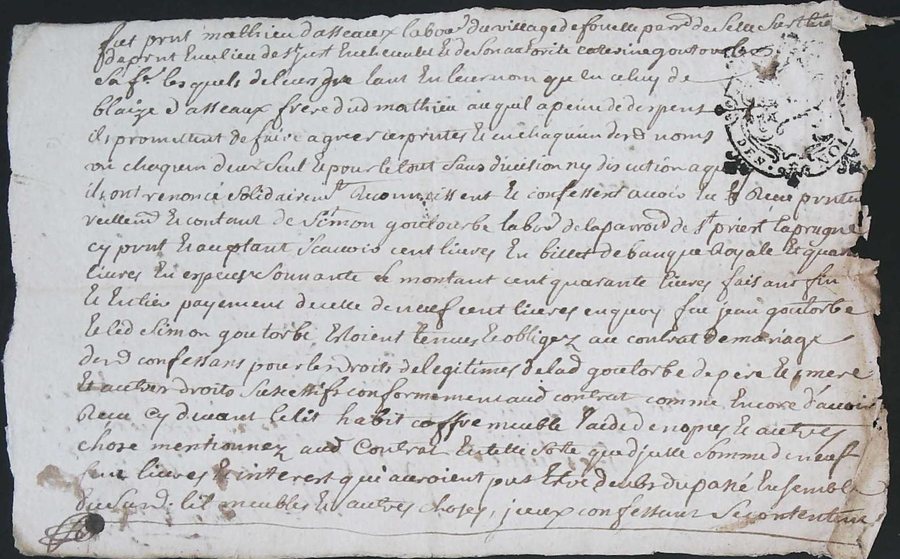 fut prnt mathieu dasseaux labor du village de
de prnt en lieu de st just en chevalet et de son autorite caterine goutorbe
sa fe lesquels de leur gre tant en leur nom que en celuy de
blaize dasseaux frere dud mathieu auquel a peine de despens
ils promettent de faire agreer ces prntes et en chaquun desd noms
un chaqun deux seul et pour le tout sans division ny discution a q
ils ont renoncé solidairemt reconnoissent et confessent avoir eu et receu prntem
reellemt et contant de simon goutorbe labor de la parroisse de st priest laprugne
cy prnt et aceptant scavoir cent livres en billet de banque royale et quara
livres en espesse sonnante le montant cent quarante livres faisant fin
et entier payement de celle de neuf cent livres en quoy fue jean goutorbe
et led simon goutorbe estoient tenues et obligez au contrat de mariage
desd confessans pour les droits de legitimes de lad goutorbe de pere et mere
et autres droits sucessifs conformement aud contrat comme encore davoir
receu cy devant le lit habit coffre meuble et autres
chose mentionnez aud contrat en telle sote que djcelle somme de neuf
cent livres et interest qui auroient put estre deubs du passé ensemble
du surd. lit meubles et autres choses, jceux confessans se contentent